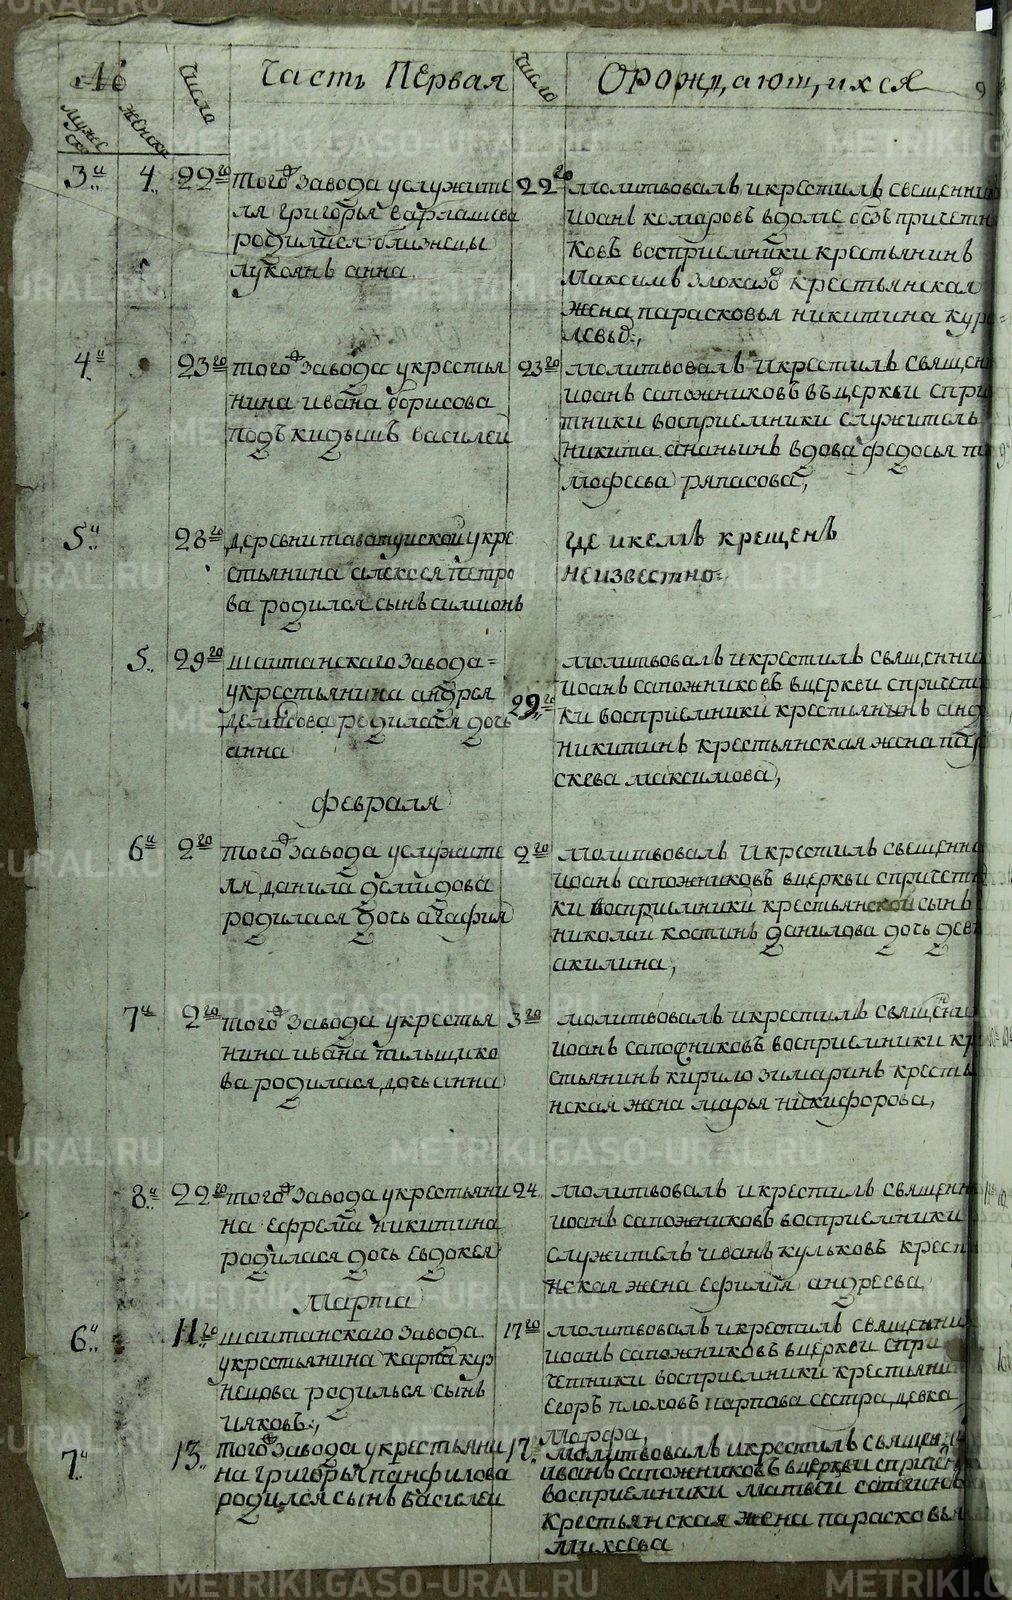 № число Часть Первая число Ораждающихся 9
мужеска женска
3и 4 22го того завода услужите
ля григорья варлашева
родилися близнецы
лукоянъ анна
22го молитвовалъ икрестилъ священник
иоанъ комаровъ вдоме безъ причетни
ковъ восприемники крестьянинъ
максимъ злоказо крестьянская
жена парасковья никитина
4и 23го того завода укрестья
нина ивана борисова
подъкидышъ василеи
23го молитвовалъ икрестилъ священ
иоанъ сапожниковъ въцеркви спри
тники восприемники служитель
никита ананьинъ вдова федосья ти
мофеева ряпасова,
5и 28го деревни таватуйской укре
стьянина алексея петро
ва родился сынъ симионъ
где икемъ крещенъ
неизвестно
5 29го шаитанскаго завода
укрестьянина андрея
демидова родилася дочь
анна
29го молитвовалъ икрестилъ священни
иоанъ сапожниковъ вцеркви спричетни
ки восприемники крестьянинъ анд
никитинъ крестьянская жена пар
скева максимова,
февраля
6и 2го того завода услужите
ля данила демидова
родилася дочь агафия
2го молитвовалъ икрестилъ священно
иоанъ сапожниковъ вцеркви спричетн
ки восприемники крестьянской сынъ
николаи костинъ данилова дочь дев
акилина,
7и 2го того завода укрестья
нина ивана пильщико
ва родилася дочь анна
3го молитвовалъ икрестилъ священно
иоанъ сапожниковъ восприемники кр
стьянинъ кирило зимаринъ кресть
нская жена марья никифорова,
8и 22го того завода укрестьяни
на ефрема никитина
родилася дочь евдокея
24 молитвовалъ икрестилъ священ
иоанъ сапожниковъ восприемники
служитель иванъ кульковъ крест
нская жена ефимия андреева
марта
6и 11го шаитанскаго завода
укрестьянина карпа куз
нецова родилься сынъ
ияковъ,
17го молитвовалъ икрестилъ священни
иоанъ сапожниковъ вцеркви спри
четники восприемники крестьяни
егоръ плоховъ карпова сестра девка
марфа,
7и 13 того завода укрестьяни
на григорья панфилова
родился сынъ василеи
17 молитвовалъ икрестилъ священ
иванъ сапожниковъ вцеркви спричетн
восприемники матвеи
крестьянская жена парасковья
михеева